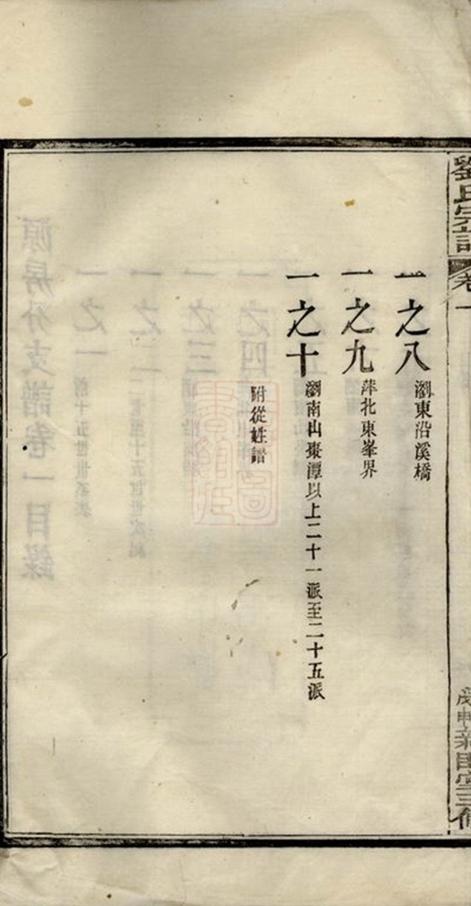 劉氏宗譜 卷一
一之八 瀏東沿溪橋
一之九 萍北東峯界
一之十 瀏南山棗潭以上二十一派至二十五派
附從姓譜